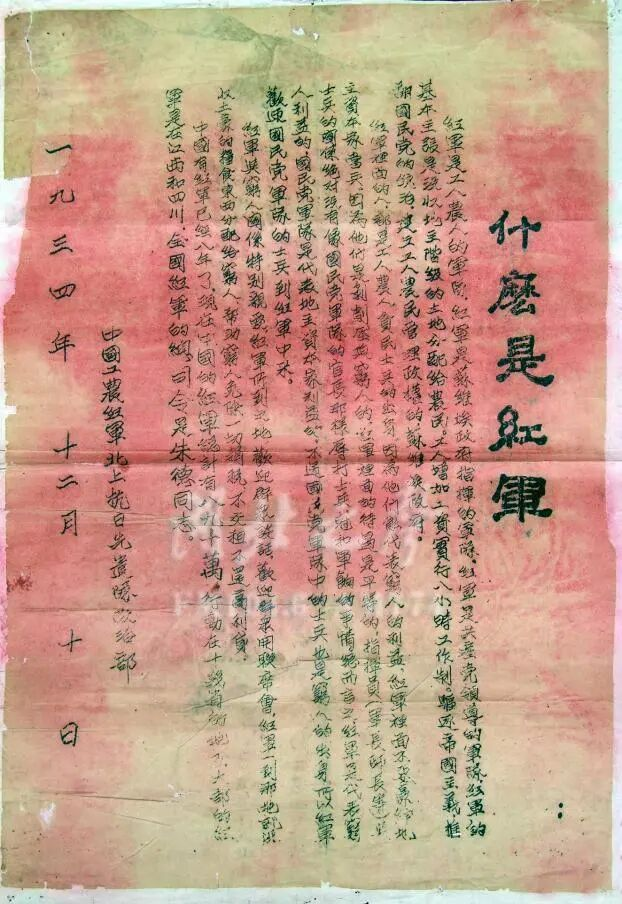 什麽是紅軍
紅軍是工人農人的軍隊，紅軍是蘇維埃政府指揮的軍隊，紅軍是共產党領導的軍隊，紅軍的
基本主張是沒收地主階級的土地分配給農民，工人增加工資實行八小時工作制。驅逐帝國主義，推
翻國民党的統治，建立工人農民管理政權的蘇維埃政府。
紅軍裡面的人，都是工人農人貧民士兵的出身，因為他們能代表窮人的利益，紅軍裡面不要豪紳地
主資本家當兵，因為他们是剥削压迫窮人的。紅軍裡面的特點是平等的，指揮員（軍長師長等）與
士兵的關係絕对没有像國民党軍隊的官長那樣辱打士兵尅扣軍餉的事情。總而言之紅軍是代表窮
人利益的，國民党軍隊是代表地主資本家利益的，不過國民党軍隊中的士兵也是窮人的出身所以紅軍
歡迎國民党軍隊的士兵到紅軍中來。
紅軍與窮人關係特別親愛，紅軍所到之地，歡迎群眾談話，歡迎群眾開聯歡會，紅軍一到那地就没
收土豪的糧食東西分配給窮人，幫助窮人免除一切捐税，不交租不還高利貸。
中國有紅軍已經八年了，現在中國的紅軍總計有八九十萬，行動在十幾省的地方，大部的紅
軍是在江西和四川，全國紅軍的總司令是朱德同志。
中國工農紅軍北上抗日先遣隊政治部
一九三四年十二月十日